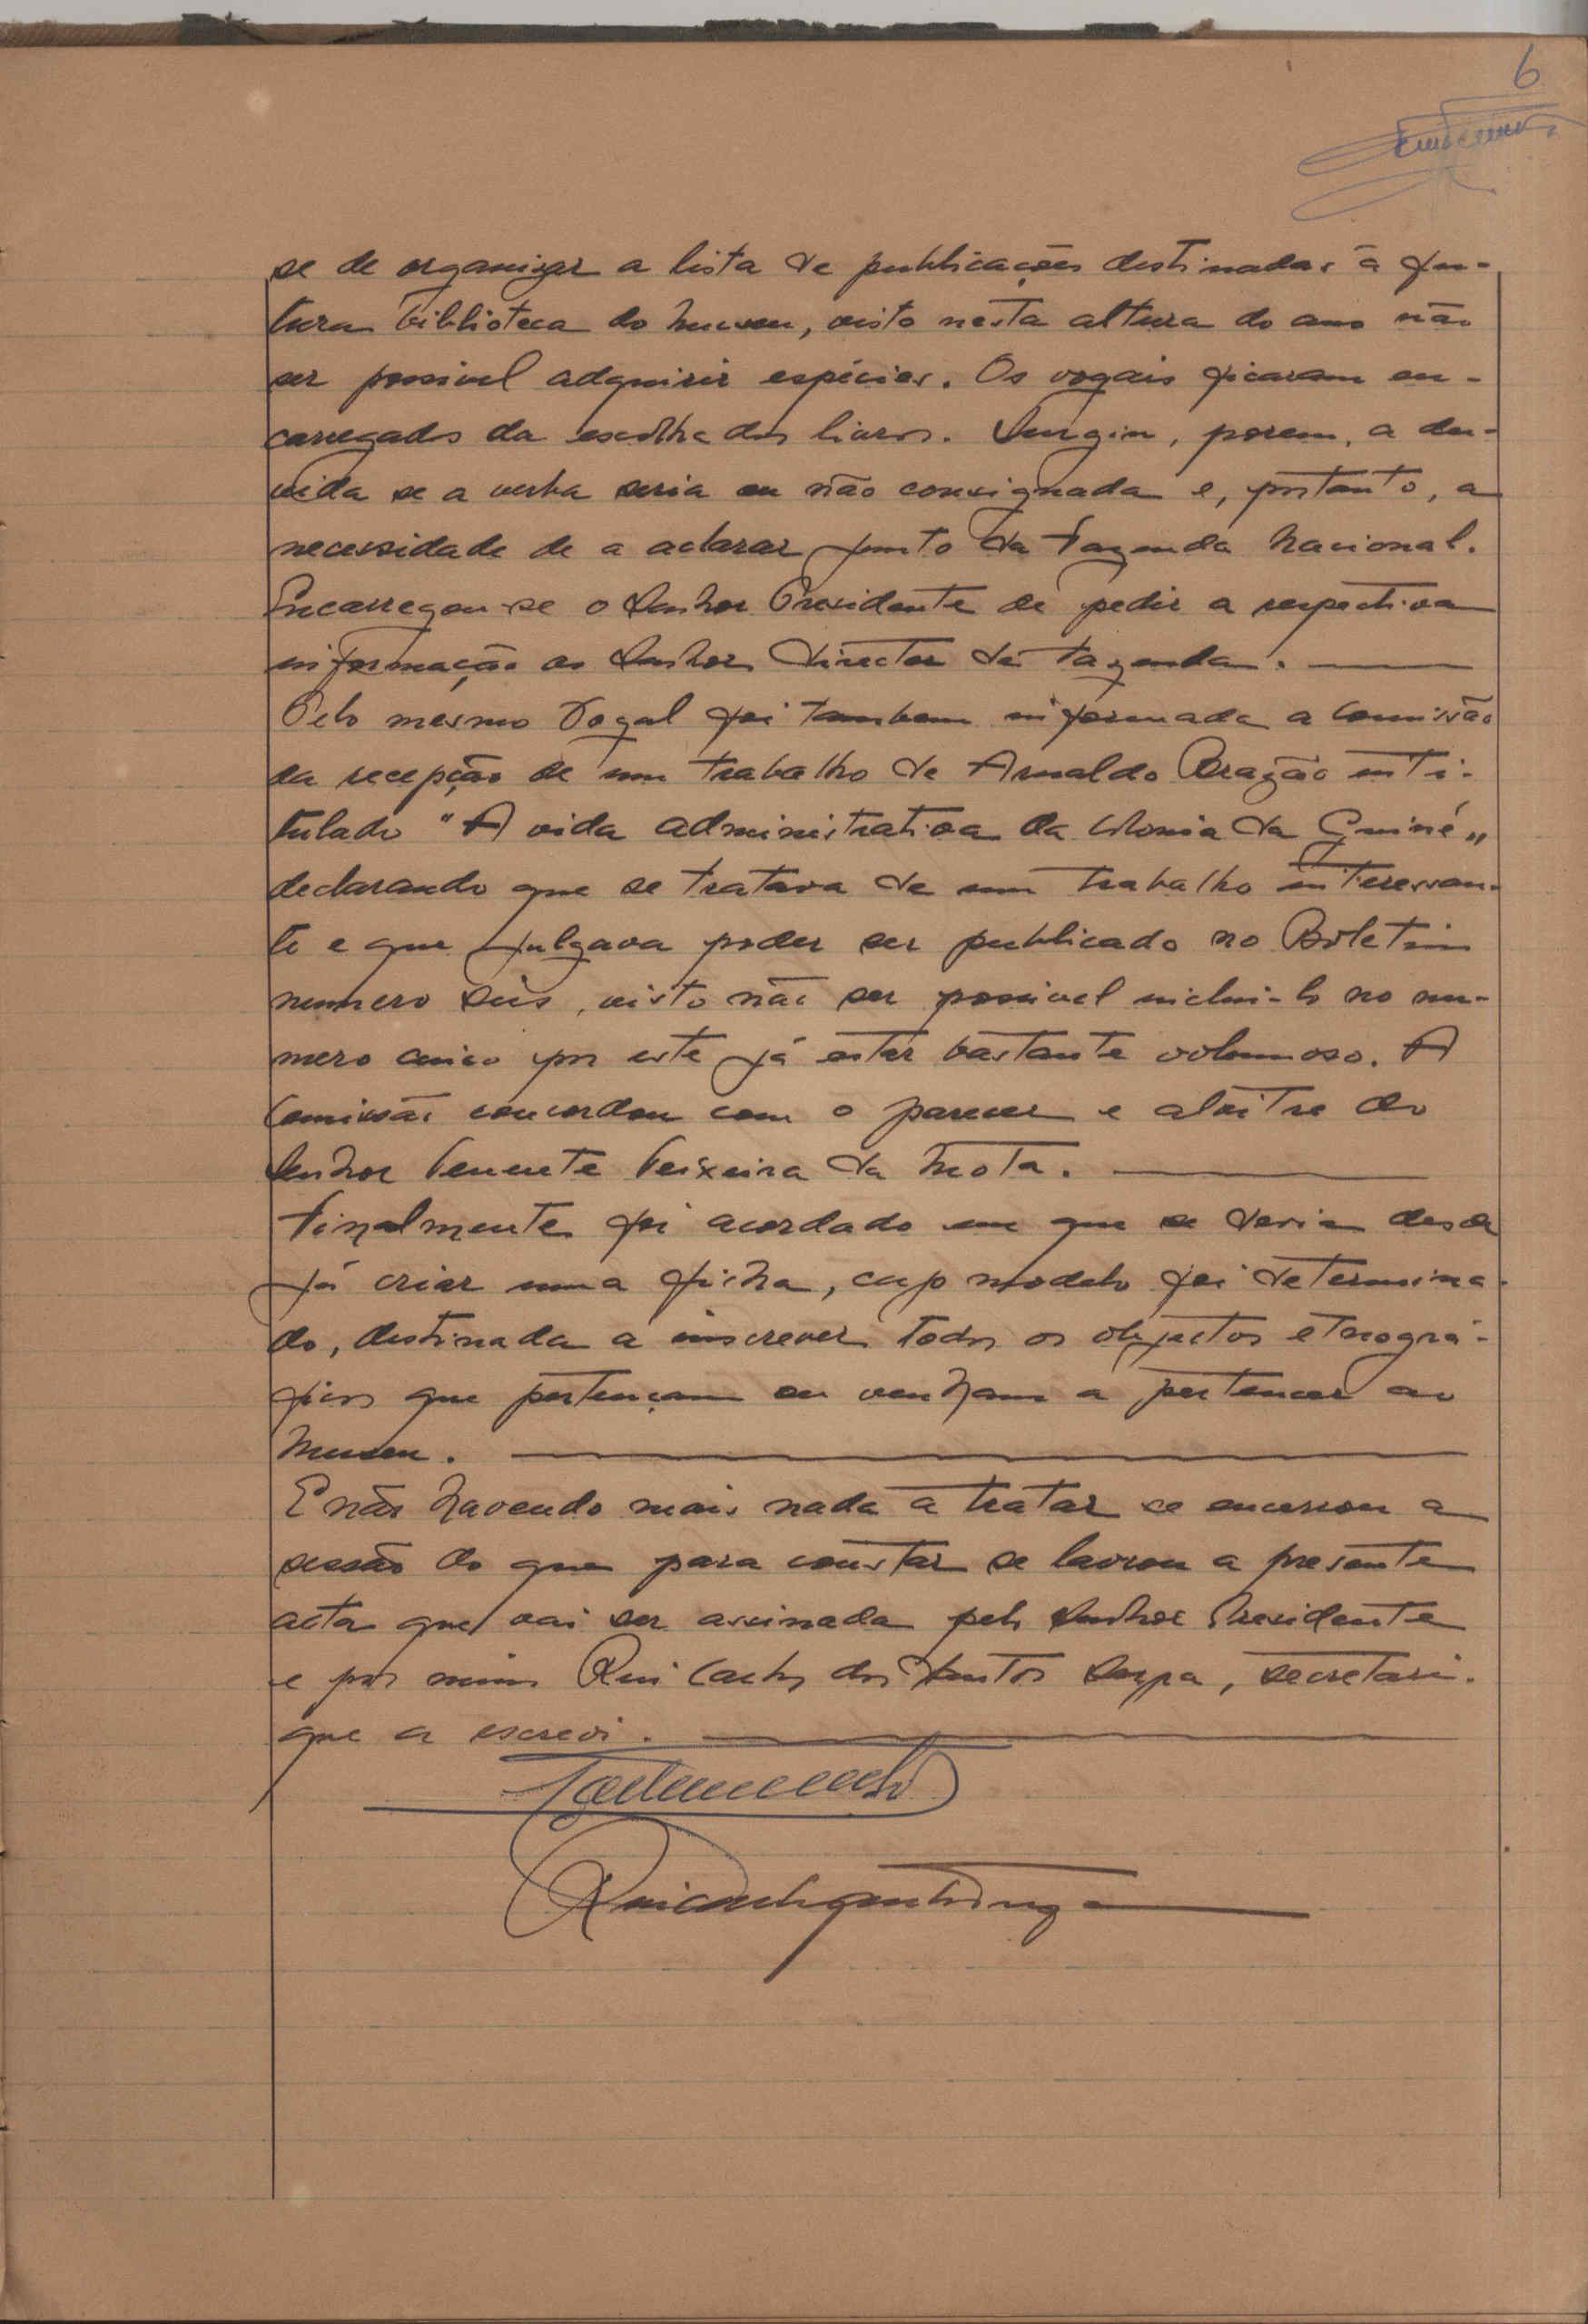 6
se de organizar a lista de publicações destinadas à fu-
tura biblioteca do Museu, visto nesta altura do ano não
ser possivel adquirir espécies. Os vogais ficaram en-
carregados da escolha dos livros. Surgiu, porem, a du-
vida se a verba seria ou não consignada e, portanto, a
necessidade de a aclarar junto da Fazenda Nacional.
Encarregou-se o Senhor Presidente de pedir a respectiva
informação ao Senhor Director de Fazenda.
Pelo mesmo Vogal foi tambem informada a Comissão
da recepção de um trabalho de Arnaldo Brazão inti-
tulado "A vida administrativa da Colonia da Guiné"
declarando que se tratava de um trabalho interessan-
te e que julgava poder ser publicado no Boletim
numero seis, visto não ser possivel inclui-lo no nu-
mero cinco por este já estar bastante volumoso. A
Comissão concordou com o parecer e alvitre do
Senhor Tenente Teixeira da Mota.
Finalmente foi acordado em que se devia desde
já criar uma ficha, cujo modelo foi determina-
do, destinada a inscrever todos os objectos etnográ-
ficos que pertençam ou venham a pertencer ao
Museu.
E não havendo mais nada a tratar se encerrou a
sessão do que para constar se lavrou a presente
acta que vai ser assinada pelo Senhor Presidente
e por mim Rui Carlos dos Santos Serpa, secretari.
que a escrevi.